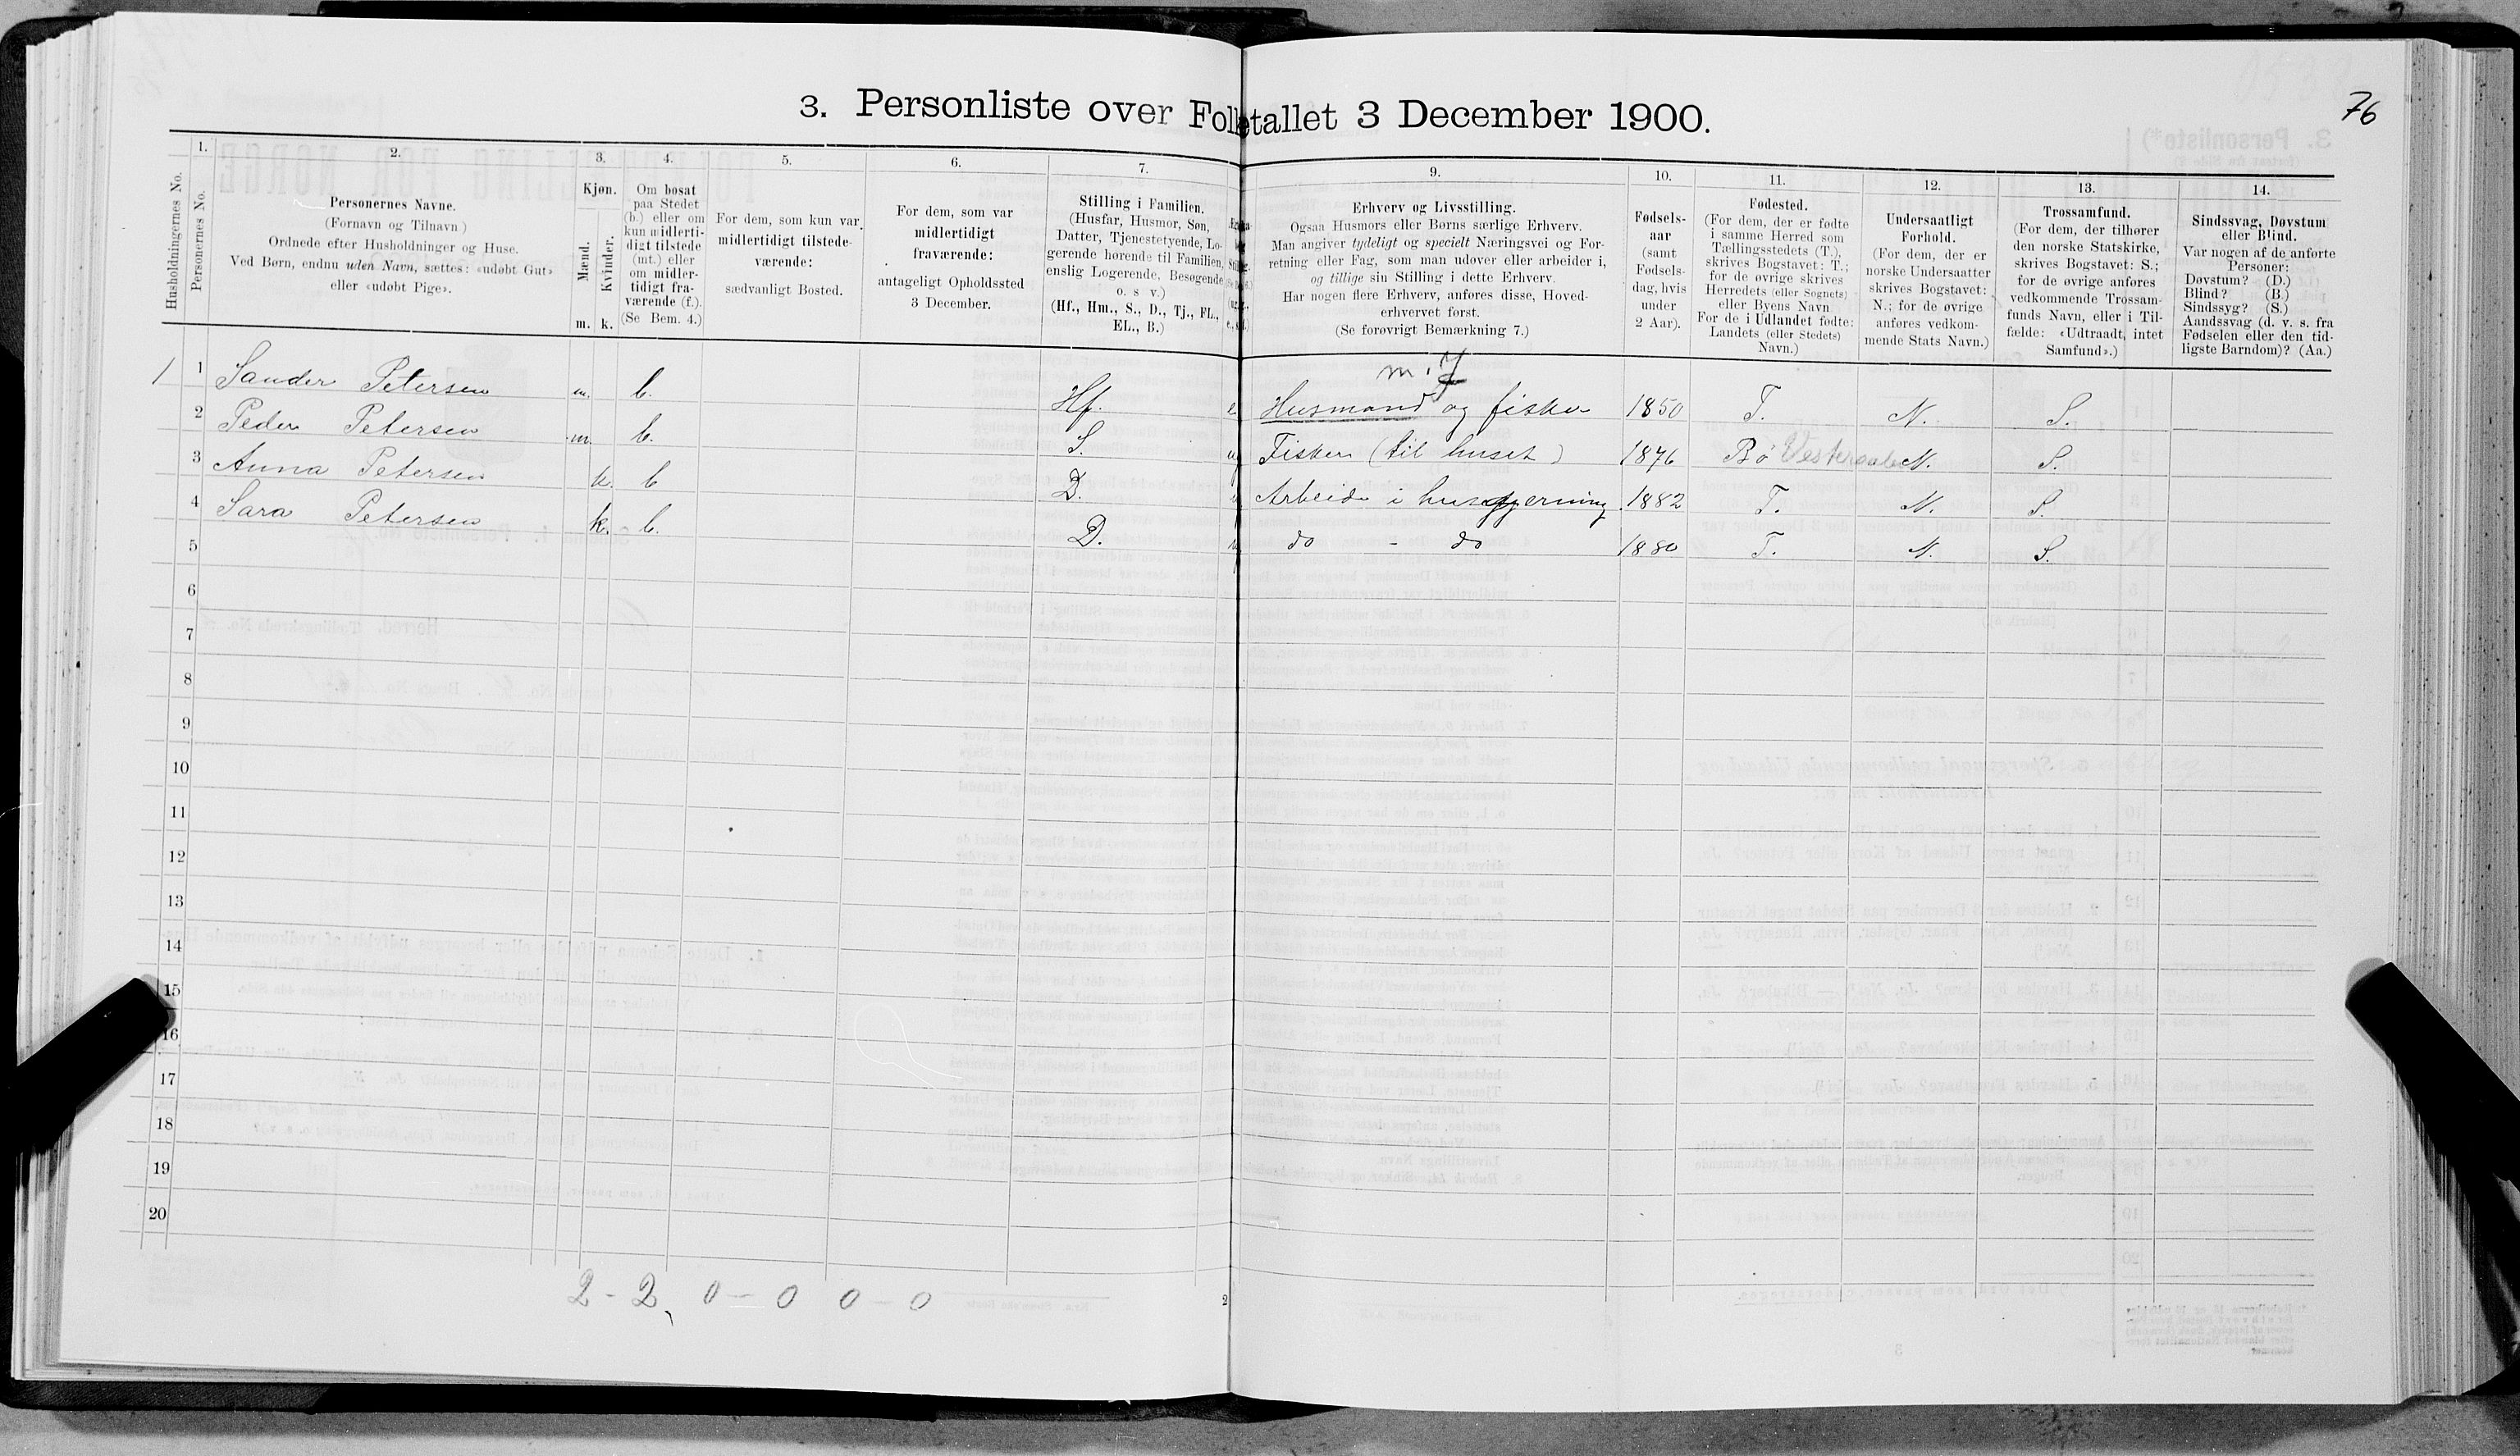 76
3. Personliste over Folketallet 3 December 1900.
1. 2. 3. 4. 5. 6. 7. 9. 10. 11. 12. 13. 14.
Husholdningernes No.
Personernes No.
Personernes Navne.
(Fornavn og Tilnavn)
Ordnede efter Husholdninger og Huse.
Ved Børn, endnu uden Navn, sættes: «udøbt Gut»
eller «udøbt Pige».
Kjøn.
Mænd.
Kvinder.
m. k.
Om bosat
paa Stedet
(b.) eller om
kun midlerti-
digt tilstede
(mt.) eller
om midler-
tidigt fra-
værende (f.).
(Se Bem. 4.)
For dem, som kun var
midlertidigt tilstede-
værende:
sædvanligt Bosted.
For dem, som var
midlertidigt
fraværende:
antageligt Opholdssted
3 December.
Stilling i Familien.
(Husfar, Husmor, Søn,
Datter, Tjenestetyende, Lo-
gerende hørende til Familien,
enslig Logerende, Besøgende
o. s v.)
(Hf., Hm., S., D., Tj., FL.,
EL., B.)
Erhverv og Livsstilling.
Ogsaa Husmors eller Børns særlige Erhverv.
Man angiver tydeligt og specielt Næringsvei og For-
retning eller Fag, som man udover eller arbeider i,
og tillige sin Stilling i dette Erhverv.
Har nogen flere Erhverv, anføres disse, Hoved-
erhvervet først.
(Se forøvrigt Bemærkning 7.)
Fødsels-
aar
(samt
Fødsels-
dag, hvis
under
2 Aar).
Fødested.
(For dem, der er fødte
i samme Herred som
Tællingsstedets (T.),
skrives Bogstavet: T.;
for de øvrige skrives
Herredets (eller Sognets)
eller Byens Navn
For de i Udlandet fødte:
Landets (eller Stedets)
Navn.)
Undersaatligt
Forhold.
(For dem, der er
norske Undersaatter
skrives Bogstavet:
N.; for de øvrige
anføres vedkom-
mende Stats Navn.)
Trossamfund.
(For dem, der tilhører
den norske Statskirke,
skrives Bogstavet: S.;
for de øvrige anføres
vedkommende Trossam-
funds Navn, eller i Til-
fælde: «Udtraadt, intet
Samfund».)
Sindssvag, Døvstum
eller Blind.
Var nogen af de anførte
Personer:
Døvstum? (D.)
Blind? (B.)
Sindssyg? (S.)
Aandssvag (d. v. s. fra
Fødselen eller den tid-
ligste Barndom)? (Aa.)
m. J
1 1 Sander Petersen m. b. Hf. e Husmand og fisker 1850 T. N. S.
2 Peder Petersen m. b. S. Fisker (til huset) 1876 Bø Vesteraalen N. S.
3 Anna Petersen k. b D. Arbeide i husgjerning 1882 T. N. S.
4 Sara Petersen k. b. D. do - do 1880 T. N. S.
5
6
7
8
9
10
11
12
13
14
15
16
17
18
19
20
2 - 2, 0 - 0 0 - 0
2